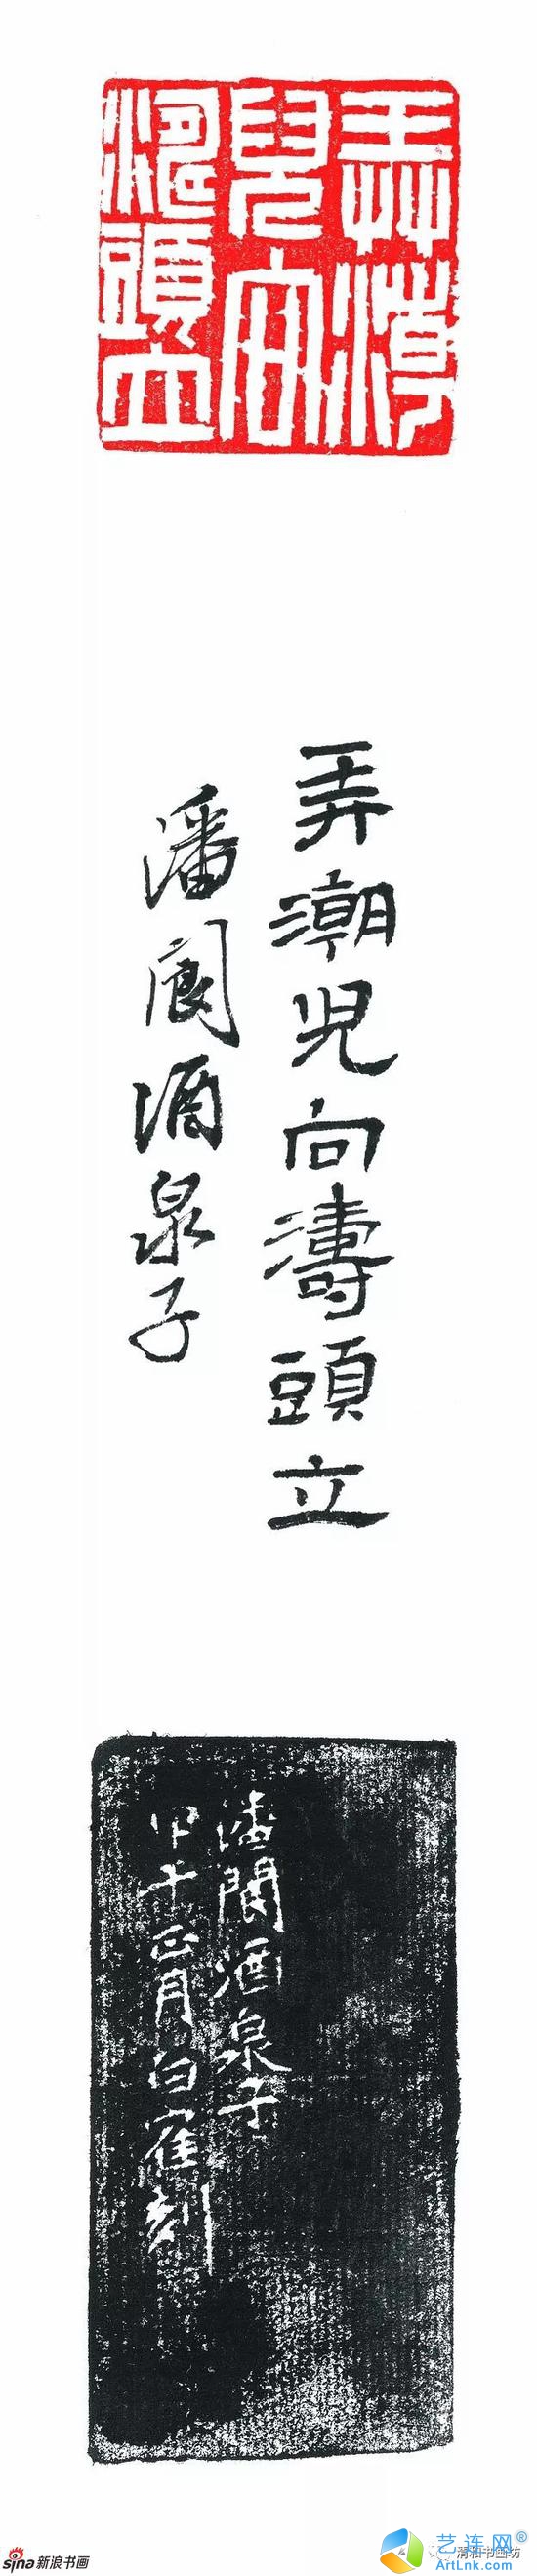 弄潮
兒向
濤頭立
弄潮児向濤頭立
潘閬酒泉子
潘閬酒泉子
甲午正月白寉刻
sina新浪书画
清和书画坊
艺连网®
ArtLnk.com